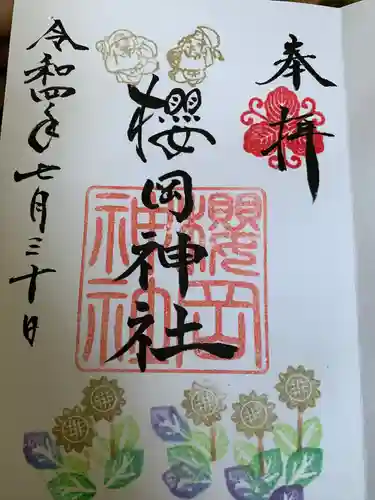 奉拝
櫻岡神社
令和四年七月三十日
櫻岡
神社